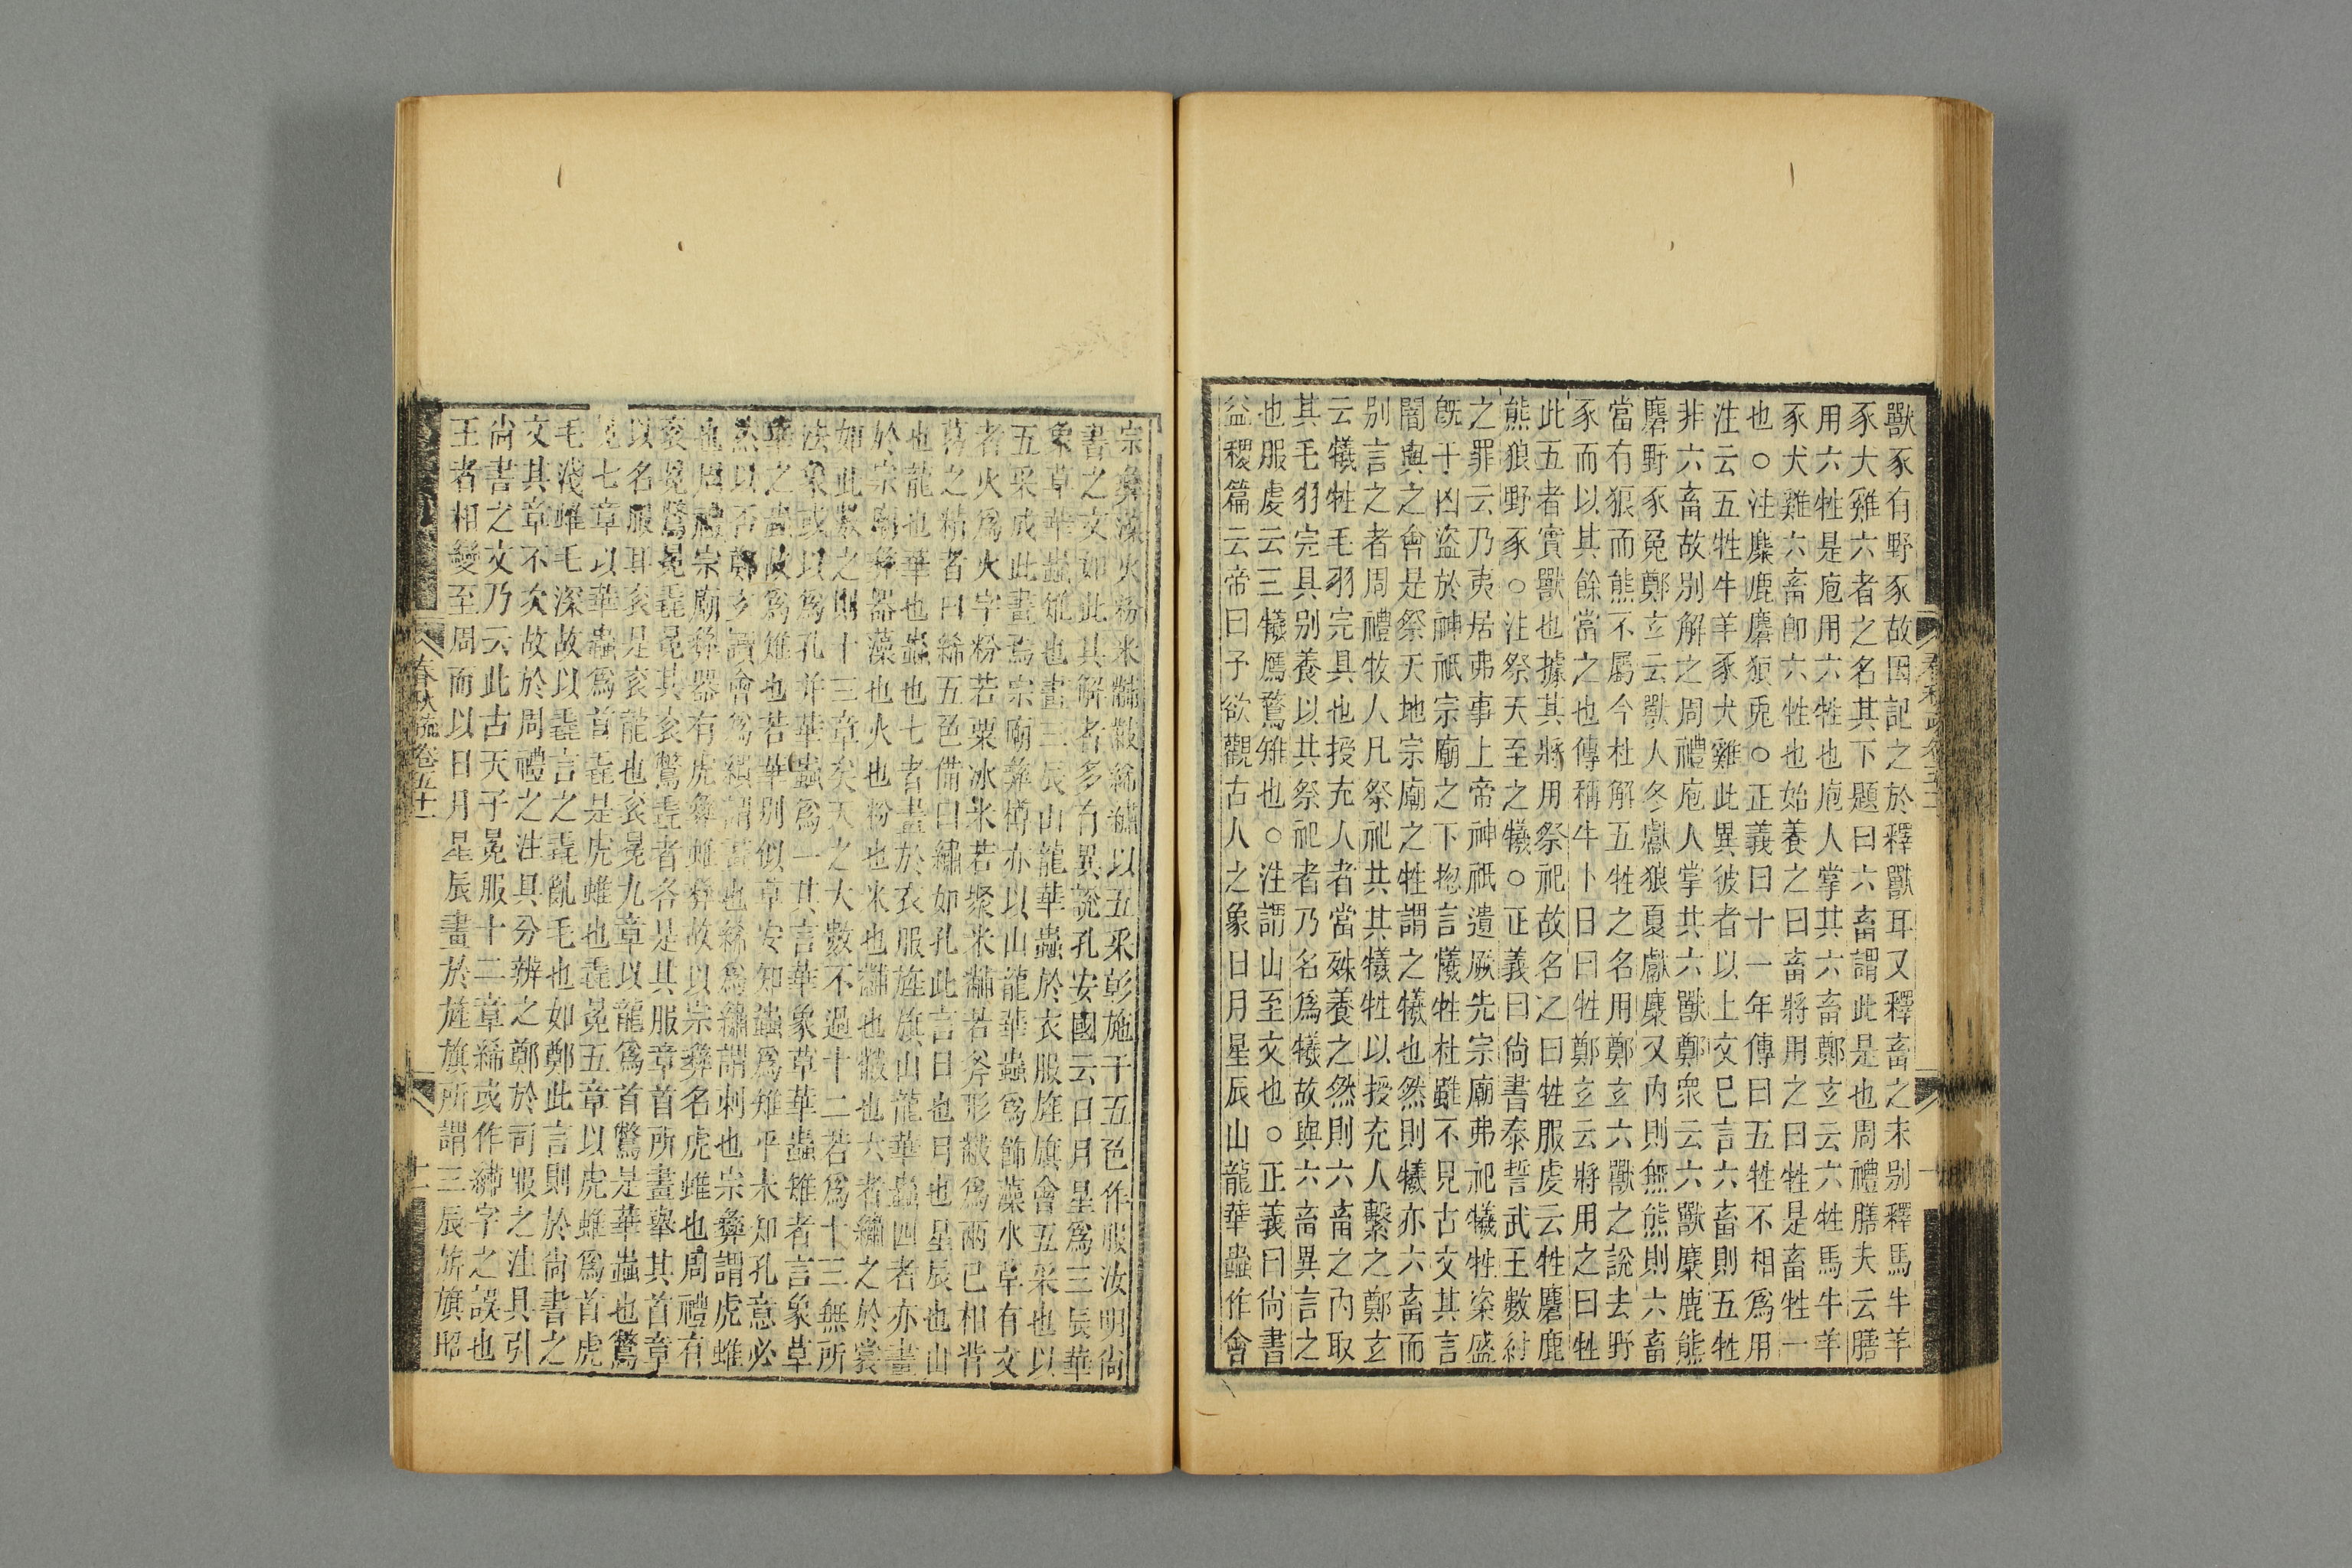 獸豕有野豕故因記之於釋獸耳又釋畜之末别釋馬牛羊
豕犬雞六者之名其下題曰六畜謂此是也周禮膳夫云膳
用六牲是庖用六牲也庖人掌其六畜鄭玄云六牲馬牛羊
豕犬雞六畜卽六牲也始養之曰畜將用之曰牲是畜牲一
也○注麋鹿麏狼兎○正義曰十一年傳曰五牲不相爲用
注云五牲牛羊豕犬雞此異彼者以上文已言六畜則五牲
非六畜故別解之周禮庖人掌共六獸鄭衆云六獸麋鹿熊
麏野豕兔鄭玄云獸人冬獻狼夏獻麋又內則無熊則六畜
當有狼而熊不屬今杜解五牲之名用鄭玄六獸之說去野
豕而以其餘當之也傳稱牛卜日曰牲鄭玄云將用之曰牲
此五者實獸也據其將用祭祀故名之曰牲服虔云牲麏鹿
熊狼野豕○注祭天至之犧○正義曰尙書泰誓武王數紂
之罪云乃夷居弗事上帝神祇遺厥先宗廟弗祀犧牲粢盛
旣于凶盜於神祇宗廟之下揔言犧牲杜雖不見古文其言
闇與之會是祭天地宗廟之牲謂之犧也然則犧亦六畜而
別言之者周禮牧人凡祭祀共其犧牲以授充人繫之鄭玄
云犧牲毛羽完具也授充人者當殊養之然則六畜之內取
其毛羽完具别養以共祭祀者乃名爲犧故與六畜異言之
也服虔云三犧鴈鶩雉也○注謂山至文也○正義曰尙書
益稷篇云帝曰予欲觀古人之象日月星辰山龍華蟲作會
宗彝藻火粉米黼黻絺繡以五采彰施于五色作服汝明尙
書之文如此其解者多有異說孔安國云日月星爲三辰華
象草華蟲雉也畫三辰山龍華蟲於衣服旌旗會五采也以
五采成此畫焉宗廟彝樽亦以山龍華蟲爲飾藻水草有文
者火爲火字粉若粟冰米若聚米黼若斧形黻爲兩已相背
葛之精者曰絺五色備曰繡如孔此言日也月也星辰也山
也龍也華也蟲也七者畫於衣服旌旗山龍華蟲四者亦畫
於宗廟彝器藻也火也粉也米也黼也黻也六者繡之於裳
如此數之則十三章矣天之大數不過十二若爲十三無所
法象或以爲孔幷華蟲爲一其言華象草華蟲雉者言象草
華之蟲故爲雉也若華别似草安知蟲爲雉乎未知孔意必
然以否鄭玄讀會爲繢謂畫也絺爲繡謂刺也宗彝謂虎蜼
也周禮宗廟彝器有虎彝蜼彝故以宗彝名虎蜼也周禮有
衮冕鷩冕毳冕其衮鷩毳者各是其服章首所畫舉其首章
以名服耳衮是衮龍也衮冕九章以龍爲首鷩是華蟲也鷩
冕七章以華蟲爲首毳是虎蜼也毳冕五章以虎蜼爲首虎
毛淺蜼毛深故以毳言之毳亂毛也如鄭此言則於尙書之
文其章不次故於周禮之注具分辨之鄭於司服之注具引
尙書之文乃云此古天子冕服十二章絺或作黹字之誤也
王者相變至周而以日月星辰畫於旌旗所謂三辰旂旗昭
春秋疏卷五十一
十一